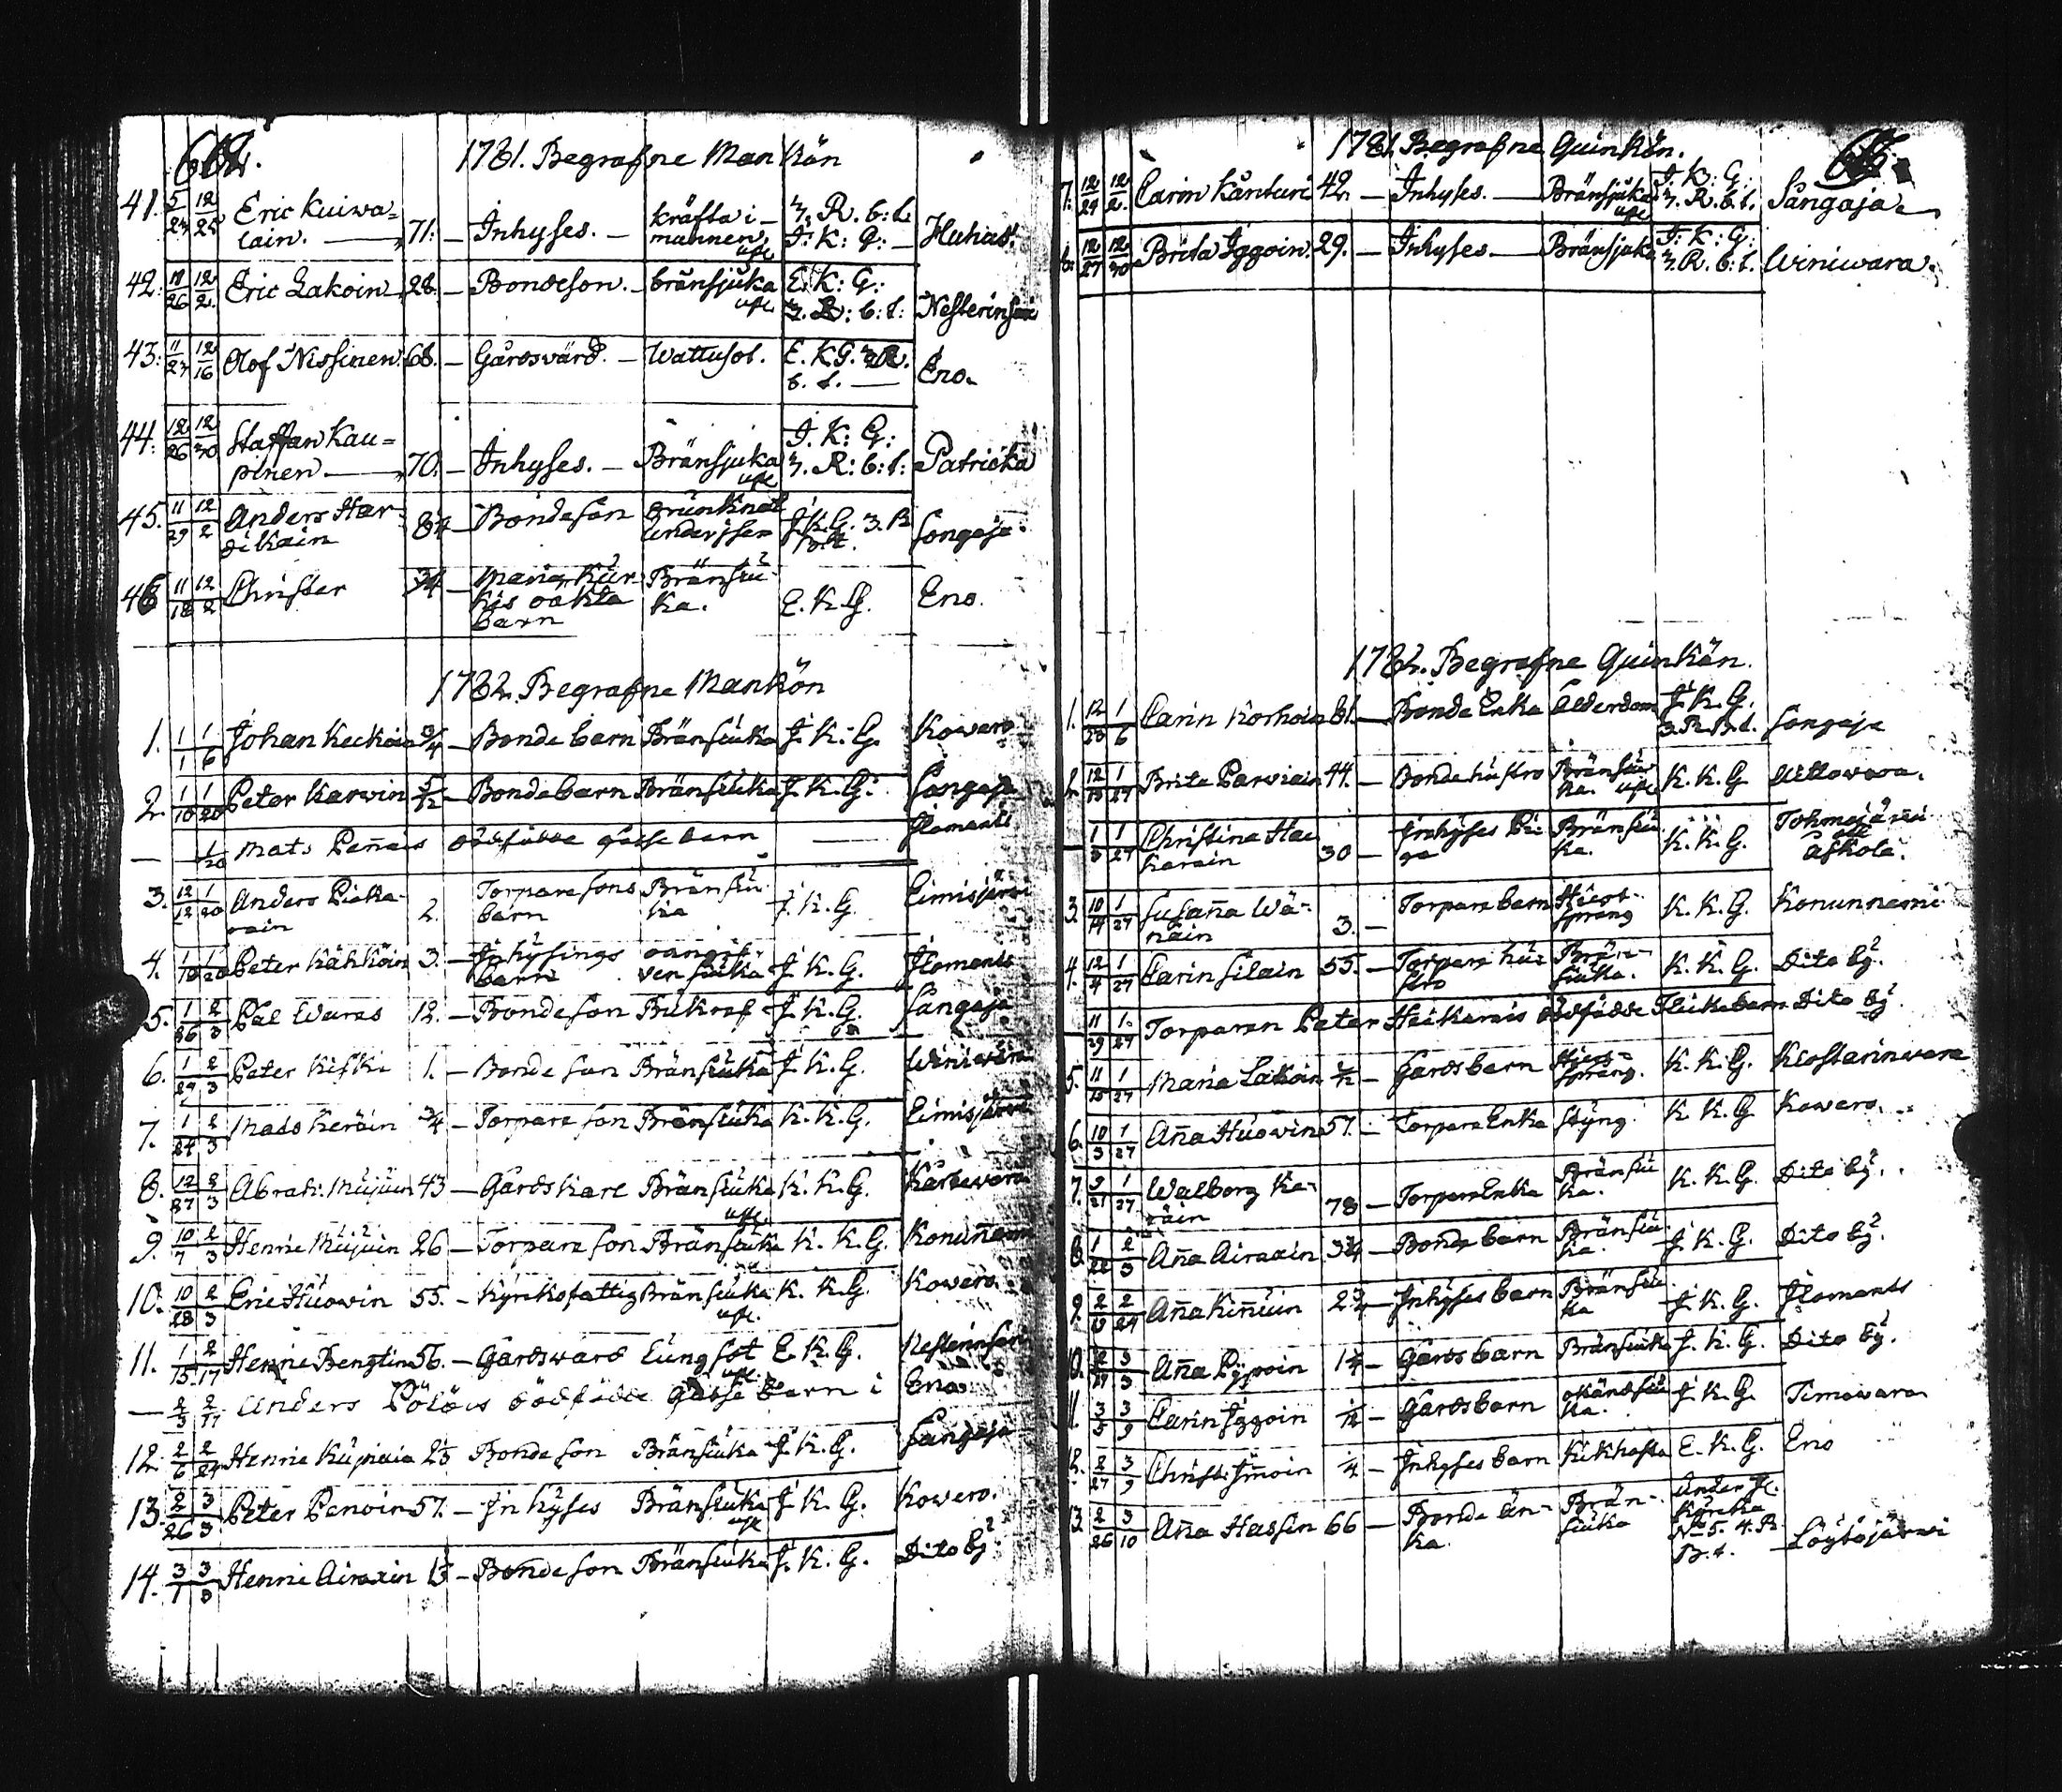 1781. Begrafne Mankön
41. 5/23 12/25 Eric Kuiwa=
lain. 71. — Inhyses. — kräfta i
munnen 3. R. b:l.
I: K: G: — Huhus.
42. 11/26 12/2. Eric Lakoin 28. — Bondeson. — bränsjuka E: K: G:
3. R: b: l: Nesterinsari
43. 11/23 12/16 Olof Nissinen. 68. — Gårdsvärd. — Wattusot. E. K. G. 3 R.
b. l. — Eno.
44. 12/26 12/30 Staffan Kau=
pinen — 70. — Inhyses. — Bränsjuka I. K: G:
3. R: b: l: Patricka
45. 11/29 12/2 Anders Har-
dikain Bondeson drunknat
I. K. G. 3. R Songaja
46 11/18 12/2 Christer 3/4 — Maria Kur
kis oäkta
barn Bränsiu-
ka. E. K. G. Eno.
1782. Begrafne Mankön
1. 1/1 1/6 Johan Keckoin 3/4 — Bonde barn Bränsiuka I. K. G. Kowero
2. 1/10 1/20 Peter Karwin 5/12 — Bondebarn Bränsiuka I. K. G. Sangaja
— 1/20 Mats Pennais dödfödde gosse barn — Ilomants
3. 12/12 1/20 Anders Picka-
rain 2. Torparesons
barn Bränsiu-
ka I. K. G. Eimisjärvi
4. 1/10 1/20 Peter Kähköin 3. — Inhysings
barn I. K. G. Ilomants
5. 1/26 2/3 Pål Waras 12. — Bondeson Bukref I. K. G. Sangaja
6. 1/29 2/3 Peter Kiski 1. — Bonde son Bränsiuka I. K. G. Winiwara
7. 1/24 2/3 Mads Keräin 3/4 — Torpare son Bränsiuka K. K. G. Eimisjärvi
8. 12/27 2/3 Abrah: Mujuin 43 — Gårdskarl Bränsiuka K. K. G.
9. 10/7 2/3 Henric Mujuin 26 — Torpare son Bränsiuka K. K. G. Konunnemi
10. 10/28 2/3 Eric Huowin 55. — Kyrkofattig Bränsiuka K. K. G. Kowero
11. 1/15 2/17 Henric Bengtin 56. — Gårdsward Lungsot E. K. G. Nesterinsari
— 2/3 2/17 Anders Pölöis dödfödde gosse barn i Eno
12. 2/6 2/24 Henric Kupiain 2 1/3 Bonde son Bränsiuka I. K. G. Sangaja
13. 2/26 3/3 Peter Penoin 57. — Inhyses Bränsiuka I. K. G. Kowero.
14. 3/1 3/3 Henric Airaxin 13 — Bonde son Bränsiuka I. K. G. Dito by
1781. Begrafne Quinkön.
7. 12/29 12/2. Carin Känturi 42. — Inhyses. — Bränsjuka I: K: G:
3. R. b. l. Sangaja.
8. 12/27 12/30 Brita Iggoin. 29. — Inhyses — Bränsjuka I: K: G:
3. R. b: l. Winiwara.
1782. Begrafne Quinkön.
1. 12/23 1/6 Carin Korhoin 81. — Bonde Enka ålderdom I. K. G.
3. R. B. l. Songaja
2. 12/13 1/27 Brita Parviain 44. — Bondehustro Bränsiu-
ka. K. K. G Uttowara.
1/3 1/27 Christina Hac
karain 30 — Inhyses Pi-
ga Bränsiu-
ka. K. K. G. Tohmajärvi
Askola.
3. 10/14 1/27 Susanna Wä-
näin 3. — Torpare barn Hiert-
språng K. K. G. Konunnemi
4. 12/4 1/27 Carin Silain 55. — Torpare hus
stro Brän-
siuka. K. K. G. Dito by.
11/29 1/27 Torparen Peter Heikarais dödfödde Flickebarn Dito by.
5. 11/15 1/27 Maria Lakoin — Gårdsbarn Hiert-
språng. K. K. G. Klostarinwara
6. 10/3 1/27 Anna Huowin 57. — Torpare Enka Styng. K. K. G. Kowero.
7. 1/27 Walborg Ka-
räin 78 — Torpare Enka Bränsiu
ka. K. K. G. Dito by.
8. 1/22 2/3 Anna Airaxin 3 3/4 — Bonde barn Bränsiu
ka. I. K. G. Dito by.
9. 2/24 Anna Kinnuin — Inhyses barn Bränsiu
ka I. K. G. Ilomants
10. 3/3 Anna Pypoin 1 1/4 — Gårds barn Bränsiuka I. K. G. Dito by.
11. 3/3 3/9 Carin Iggoin 1/12 — Gårdsbarn okändsiu-
ka. I. K. G. Timowara
12. 2/27 3/9 Christ. Immoin 1/4 — Inhyses barn Kikhosta E. K. G. Eno
13. 2/26 3/10 Anna Hassin 66 — Bonde än-
ka. Brän-
siuka Under
Kyrcka
No 5. 4. R
B. l. Löytöjärvi